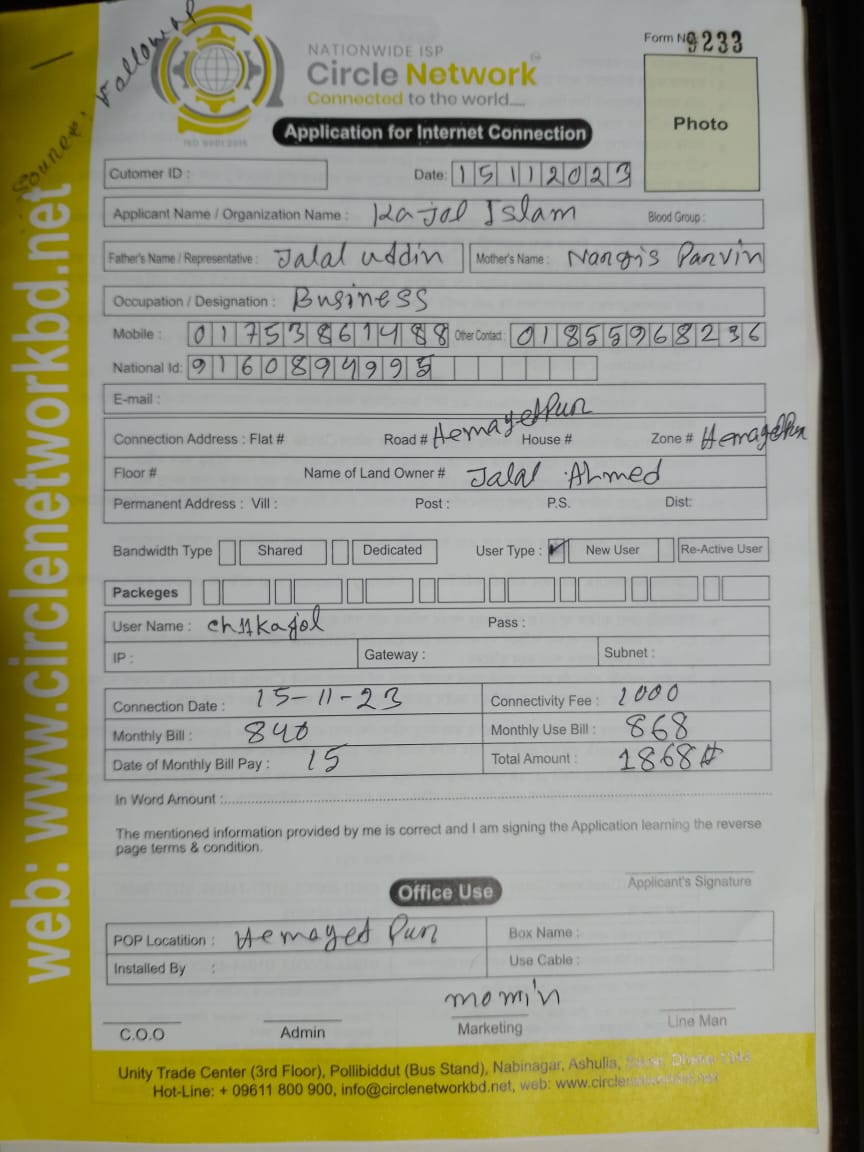 Source: Follow up
NATIONWIDE ISP
Circle Network
Connected to the world....
ISO 9001:2015
Form No 9233
Photo
Application for Internet Connection
Cutomer ID :
Date: 15112023
Applicant Name / Organization Name : Kajol Islam Blood Group :
Father's Name / Representative : Jalal uddin Mother's Name : Nargis Parvin
Occupation / Designation : Business
Mobile : 01753861488 Other Contact : 01855968236
National Id: 9160894995
E-mail :
Connection Address : Flat # Road # Hemayetpur House # Zone # Hemayetpur
Floor # Name of Land Owner # Jalal Ahmed
Permanent Address : Vill : Post : P.S. Dist:
Bandwidth Type Shared Dedicated User Type : New User Re-Active User
Packeges
User Name : ch11kajol Pass :
IP : Gateway : Subnet :
Connection Date : 15-11-23 Connectivity Fee : 1000
Monthly Bill : 840 Monthly Use Bill : 868
Date of Monthly Bill Pay : 15 Total Amount : 1868#
In Word Amount :
The mentioned information provided by me is correct and I am signing the Application learning the reverse
page terms & condition.
Applicant's Signature
Office Use
POP Locatition : Hemayet Pur Box Name :
Installed By : Use Cable :
momin
C.O.O Admin Marketing Line Man
Unity Trade Center (3rd Floor), Pollibiddut (Bus Stand), Nabinagar, Ashulia,
Hot-Line: + 09611 800 900, info@circlenetworkbd.net, web: www.circlenetworkbd.net
web: www.circlenetworkbd.net